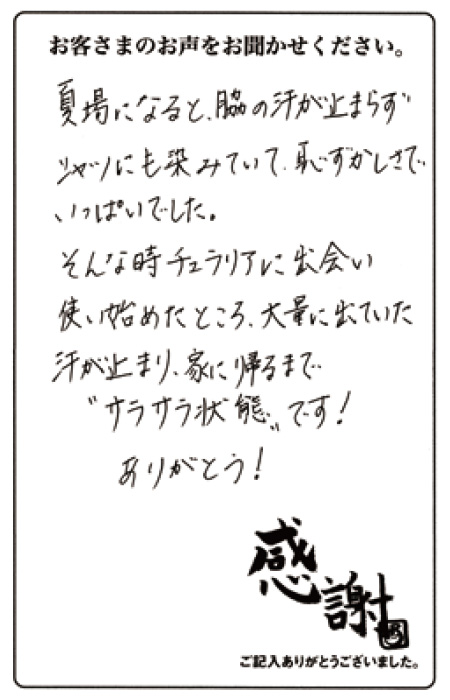 お客さまのお声をお聞かせください。
夏場になると、脇の汗が止まらず
シャツにも染みていて、恥ずかしさで
いっぱいでした。
そんな時チュラリアに出会い
使い始めたところ、大量に出ていた
汗が止まり、家に帰るまで
〝サラサラ状態〟です!
ありがとう!
感謝
ご記入ありがとうございました。